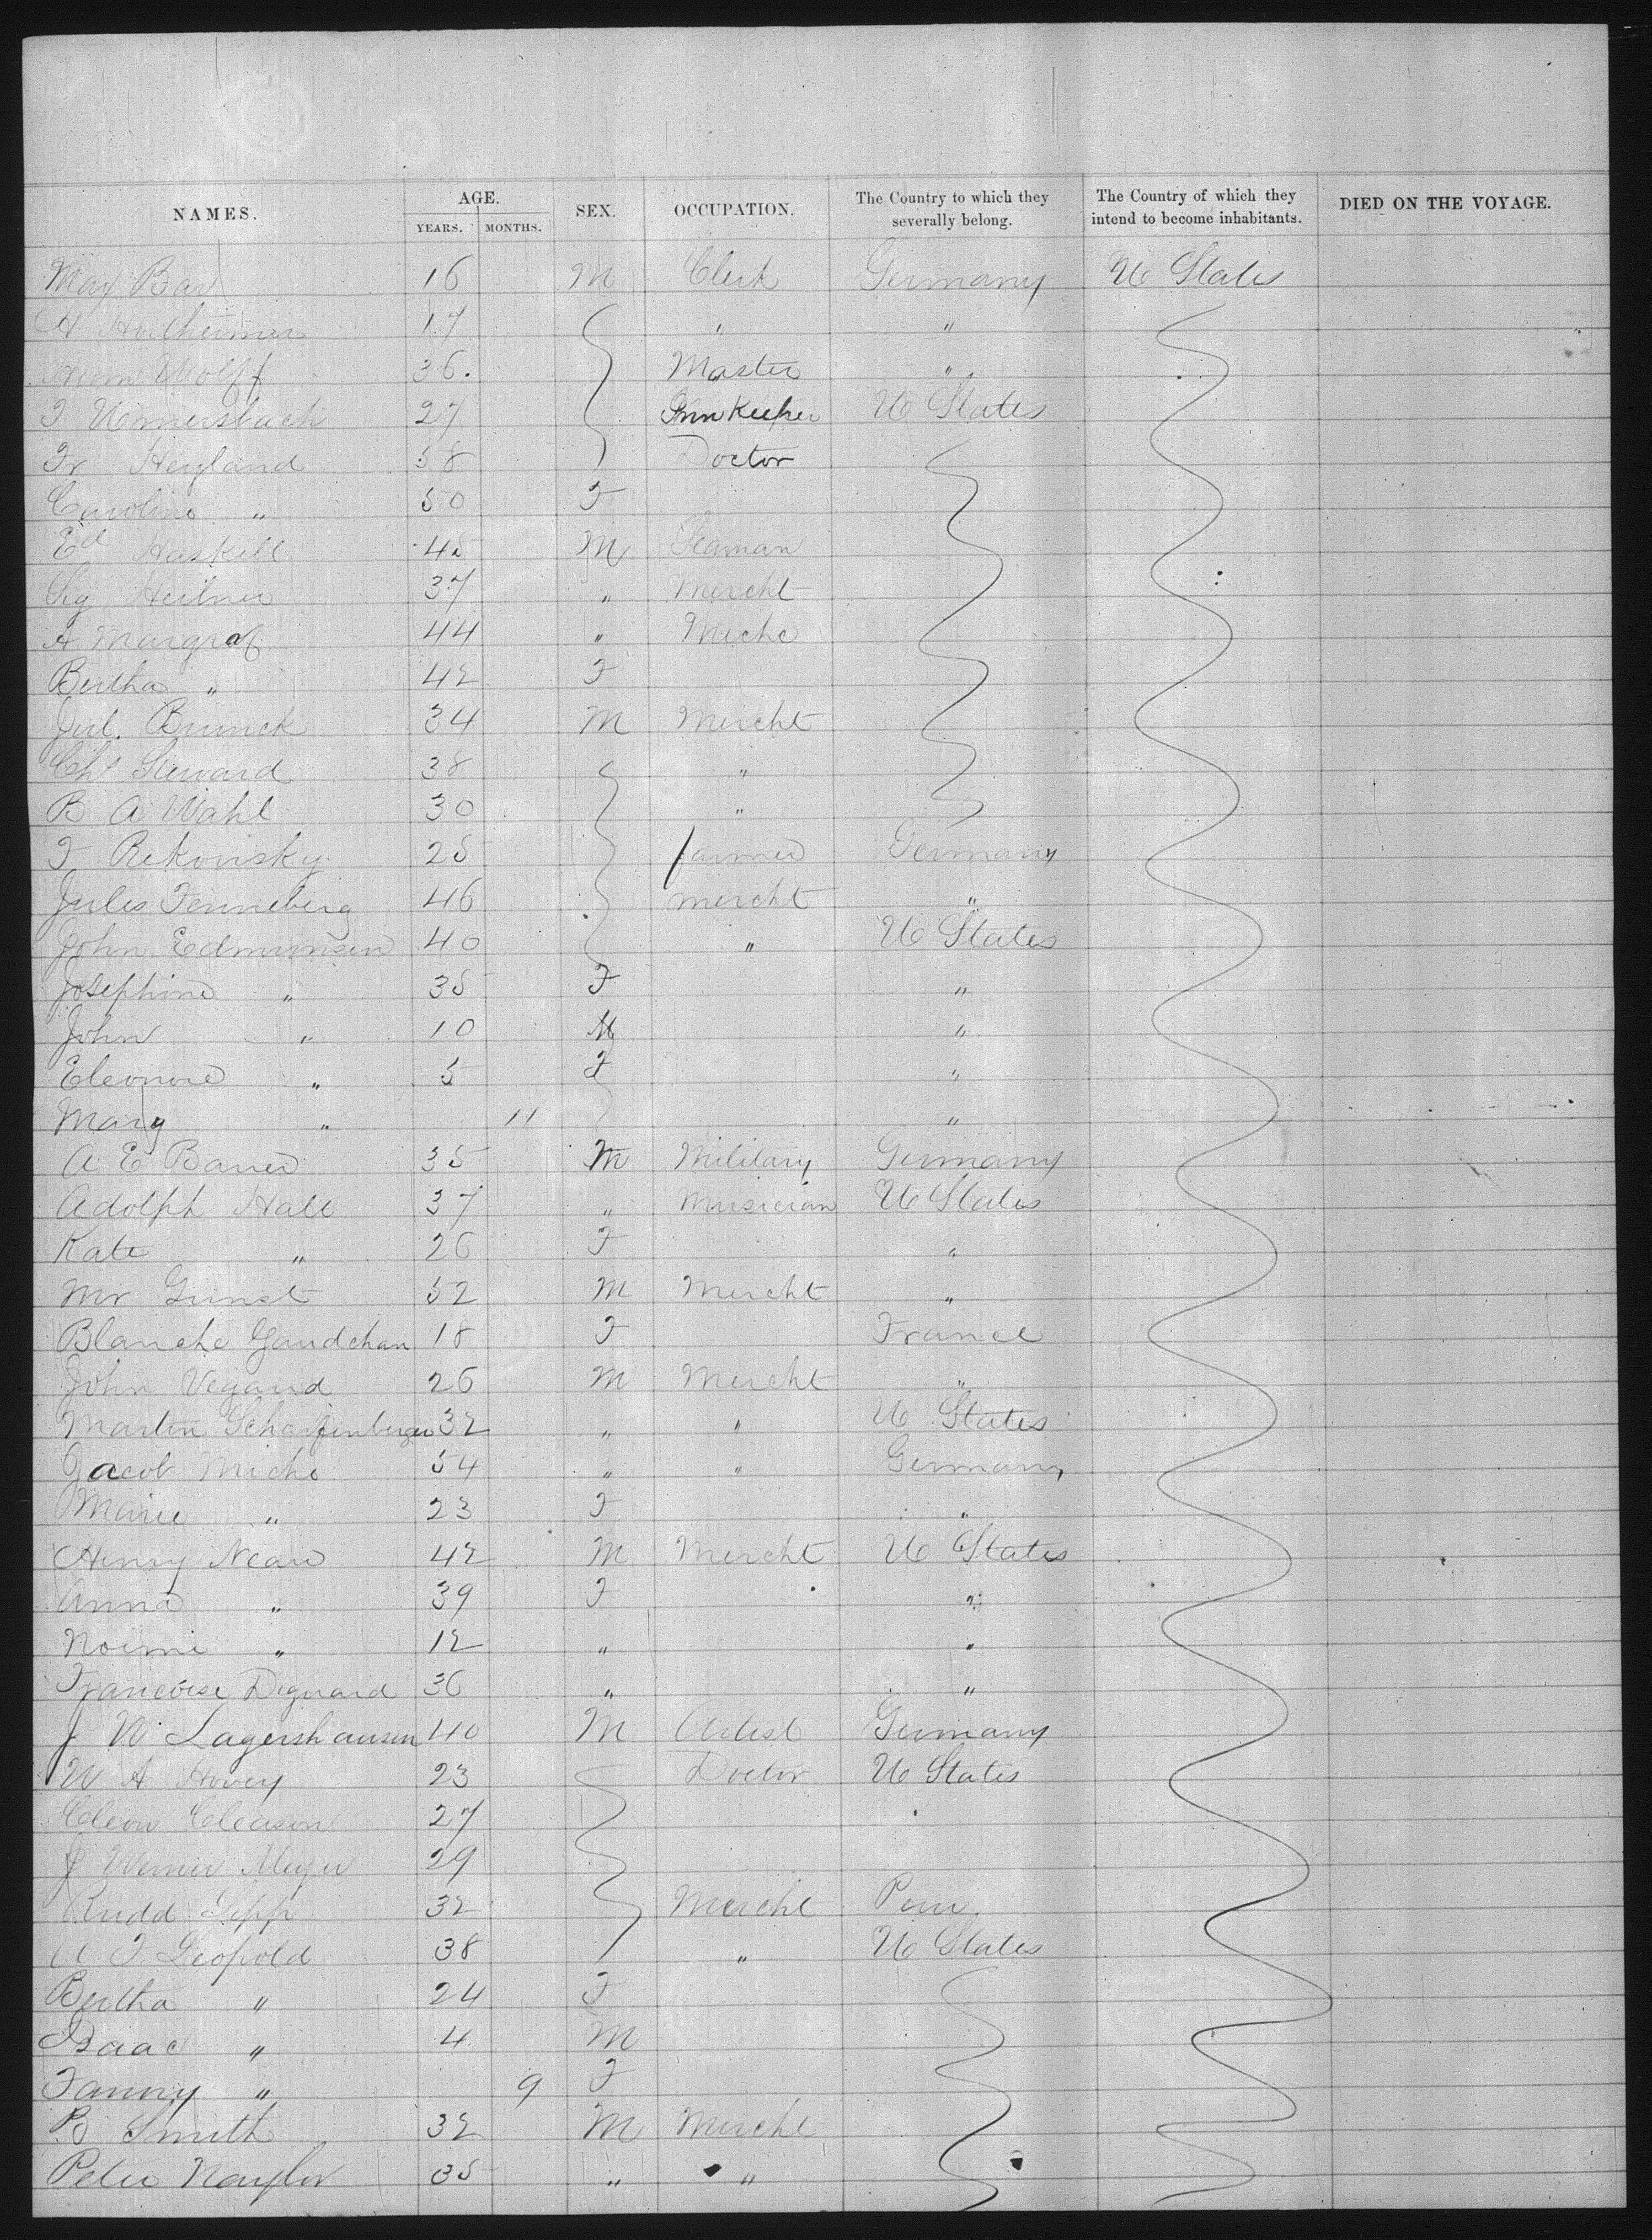 NAMES. AGE. YEARS. MONTHS. SEX. OCCUPATION. The Country to which they severally belong. The Country of which they intend to become inhabitants. DIED ON THE VOYAGE.
Max Bar 16 M Clerk Germany U States
A 17 " "
Herm Wolff 36. Master "
F Ummersbach 27 Innkeeper U States
Fr Heyland 58 Doctor
Caroline " 50 F
Ed Haskell 45 M Seaman
Sig Heilner 37 " Mercht
A Margraf 44 " Mecha
Bertha " 42 F
Jul. Brunck 34 M Mercht
Chs Steward 38 "
B A Wahl 30 "
F Rekonsky 25 farmer Germany
Jules Fenneberg 46 mercht "
John Edmunsen 40 " U States
Josephine " 35 F "
John " 10 M "
Eleonore " 5 F "
Mary " 11 "
A E Bauer 35 M Military Germany
Adolph Hall 37 " Musician U States
Kate " 26 F "
Mr Gunst 52 M Mercht "
Blanche Gaudchau 18 F France
John Vegand 26 M Mercht "
Martin Scharfenberger 32 " " U States
Jacob Micho 54 " " Germany
Marie " 23 F "
Henry Near 42 M Mercht U States
Anna " 39 F "
Noemi " 12 " "
Francoise Diguard 36 " "
J W Lagershausen 40 M Artist Germany
W A Hovey 23 Doctor U States
Cleon Cleason 27
J Werner Meyer 29
Rudd Lipp 32 Mercht Peru
A F Leopold 38 " U States
Bertha " 24 F
Isaac " 4 M
Fanny " 9 F
B Smith 32 M Mercht
Peter Naylor 35 " "